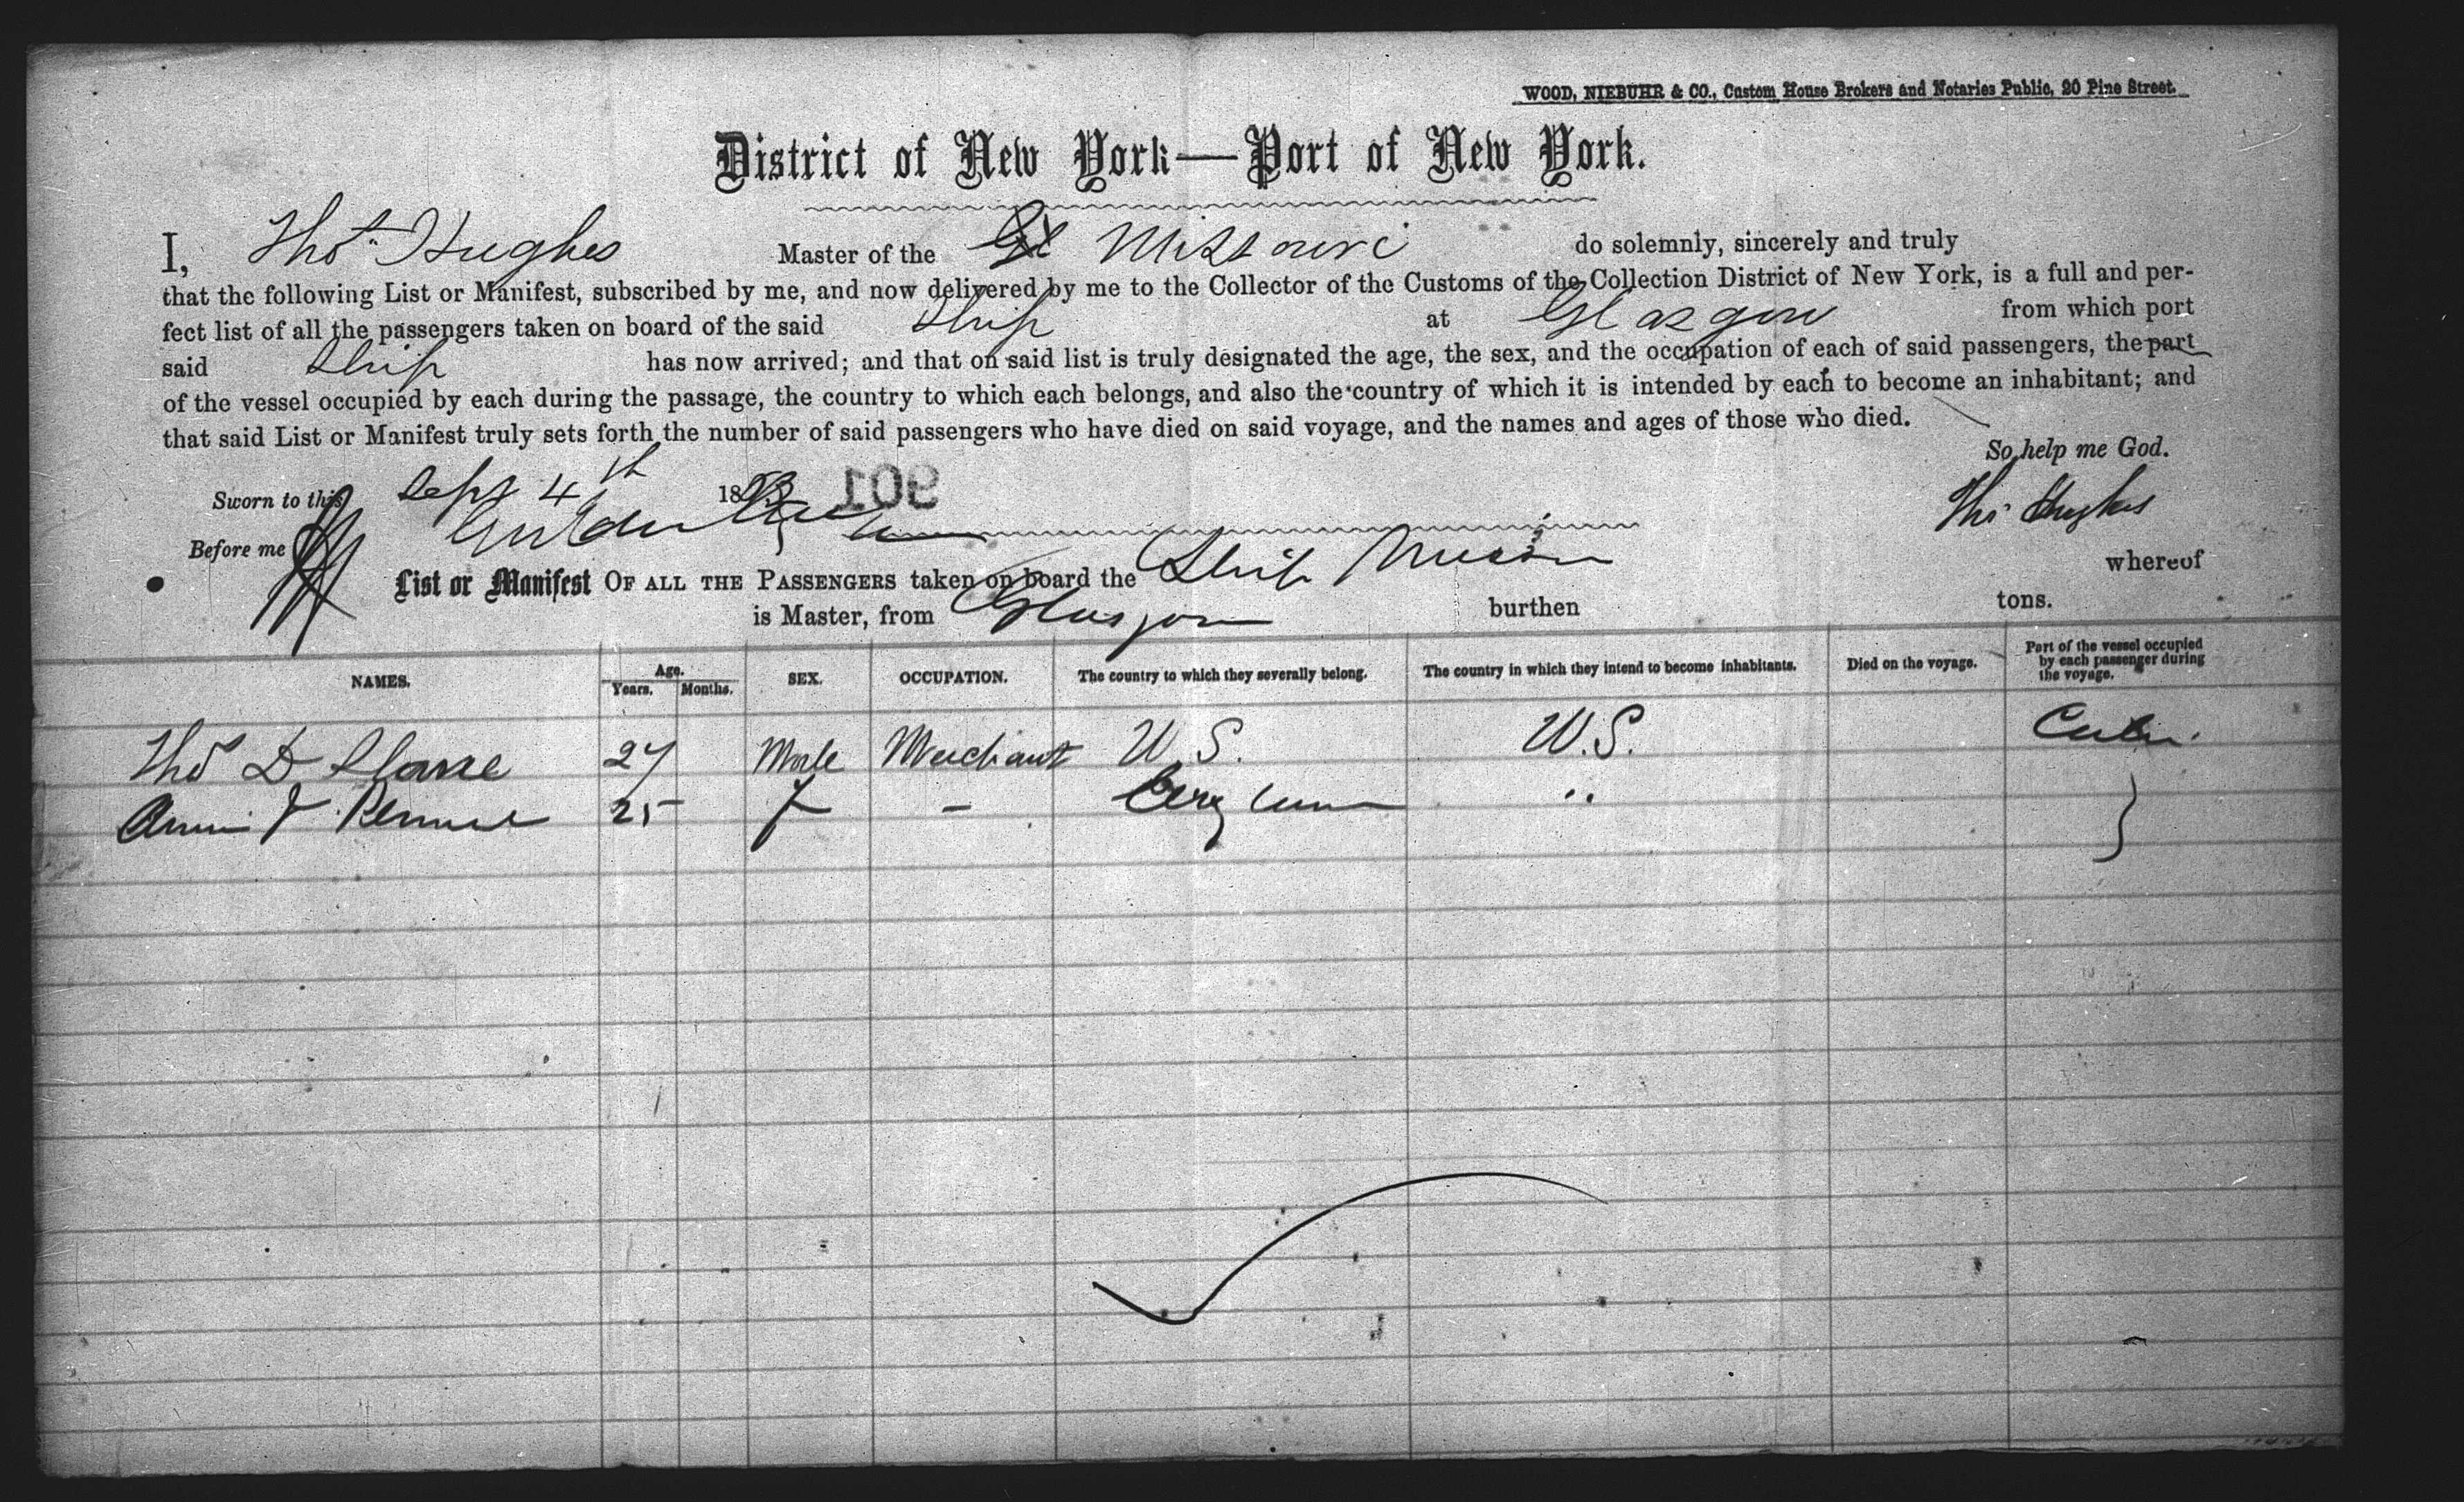 WOOD, NIEBUHR & CO., Custom House Brokers and Notaries Public, 20 Pine Street.
District of New York—Port of New York.
I, Thos Hughes Master of the Missouri do solemnly, sincerely and truly
that the following List or Manifest, subscribed by me, and now delivered by me to the Collector of the Customs of the Collection District of New York, is a full and per-
fect list of all the passengers taken on board of the said Ship at Glasgow from which port
said Ship has now arrived; and that on said list is truly designated the age, the sex, and the occupation of each of said passengers, the part
of the vessel occupied by each during the passage, the country to which each belongs, and also the country of which it is intended by each to become an inhabitant; and
that said List or Manifest truly sets forth the number of said passengers who have died on said voyage, and the names and ages of those who died.
So help me God.
Sworn to this Sept 4th 18 901
Thos Hughes
Before me
List or Manifest OF ALL THE PASSENGERS taken on board the Ship whereof
is Master, from Glasgow burthen tons.
NAMES. Age. Years. Months. SEX. OCCUPATION. The country to which they severally belong. The country in which they intend to become inhabitants. Died on the voyage. Part of the vessel occupied by each passenger during the voyage.
Thos D 27 Male Merchant U.S. U.S.
25 f - "